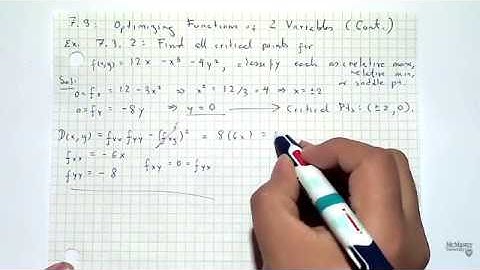 7.3: Optimizing Functions of 2 Variables (Cont.)
Ex. 7.3.2: Find all critical points for
f(x,y) = 12x - x³ - 4y², classify each as relative max,
relative min,
or saddle pt.
Sol:
0 = fx = 12 - 3x² ⇒ x² = 12/3 = 4 ⇒ x = ±2
0 = fy = -8y ⇒ y = 0 → Critical Pts: (±2, 0).
D(x,y) = fxx fyy - (fxy)² = 8(6x) =
fxx = -6x
fxy = 0 = fyx
fyy = -8
McMaster